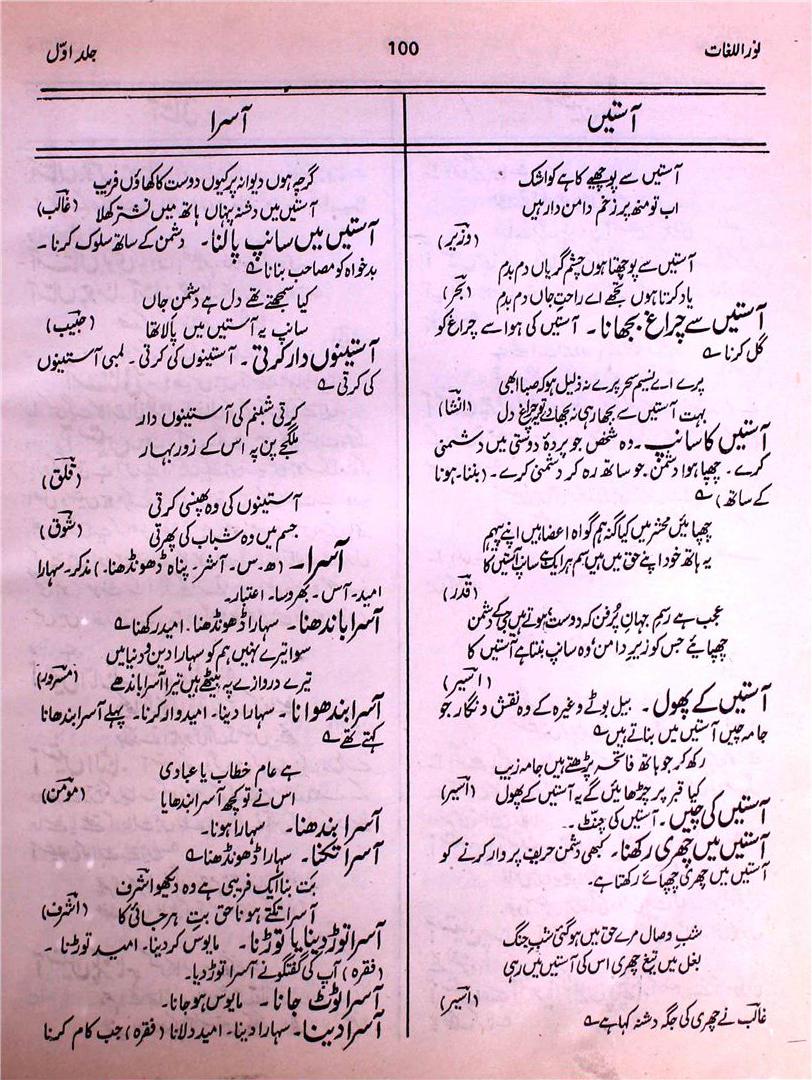 نوراللغات
100
جلد اوّل
آستیں
آستیں سے پوچھیے کاہے کو اشک
اب تو منھ پر زخم دامن دار ہیں
(وزیر)
آستیں سے پوچھتا ہوں چشم گریاں دم بدم
یاد کرتا ہوں تجھے اے راحتِ جاں دم بدم (بحر)
آستیں سے چراغ بجھانا۔ آستیں کی ہوا سے چراغ کو
گل کرنا ؎
پرے اے نسیم سحر پرے نہ ذلیل ہو کر صبا ابھی
بہت آستیں سے بجھا رہی نہ بجھا دے تو چراغ دل (انشا)
آستیں کا سانپ۔ وہ شخص جو پردۂ دوستی میں دشمنی
کرے۔ چھپا ہوا دشمن جو ساتھ رہ کر دشمنی کرے۔ (بننا۔ ہونا
کے ساتھ) ؎
چھپائیں محشر میں کیا گنہ ہم گواہ اعضا ہیں اپنے پیہم
یہ ہاتھ خود اپنے حق میں ہیں سم ہر ایک ہے سانپ آستیں کا
(قدر)
عجب ہے رسم جہان پُر فن کہ دوست ہوتے ہیں جی کے دشمن
چھپائیے جس کو زیرِ دامن وہ سانپ بنتا ہے آستیں کا
(اسیر)
آستیں کے پھول۔ بیل بوٹے وغیرہ کے وہ نقش و نگار جو
جامہ چیں آستیں میں بناتے ہیں ؎
رکھ کر جو ہاتھ فاتحہ پڑھتے ہیں جامہ زیب
کیا قبر پر چڑھائیں گے یہ آستیں کے پھول (اسیر)
آستیں کی چیں۔ آستیں کی چنٹ۔
آستیں میں چھری رکھنا۔ کبھی دشمن حریف پر وار کرنے کو
آستیں میں چھری چھپائے رکھتا ہے۔
شبِ وصال مرے حق میں ہو گئی شبِ جنگ
بغل میں تیغ چھری اس کی آستیں میں رہی
(اسیر)
غالب نے چھری کی جگہ دشنہ کہا ہے ؎
آسرا
گرچہ ہوں دیوانہ پر کیوں دوست کا کھاؤں فریب
آستیں میں دشنہ پنہاں ہاتھ میں نشتر کھلا (غالب)
آستیں میں سانپ پالنا۔ دشمن کے ساتھ سلوک کرنا۔
بدخواہ کو مصاحب بنانا ؎
کیا سمجھتے تھے دل ہے دشمن جاں
سانپ یہ آستیں میں پالا تھا (حبیب)
آستینوں دار کرتی۔ آستینوں کی کرتی۔ لمبی آستینوں
کی کرتی ؎
کرتی شبنم کی آستینوں دار
ملگجے پن پہ اس کے زور بہار
(قلق)
آستینوں کی وہ پھنسی کرتی
جسم میں وہ شباب کی پھرتی (شوق)
آسرا۔ (ھ۔ س۔ آشر۔ پناہ ڈھونڈھنا۔) مذکر۔ سہارا
امید۔ آس۔ بھروسا۔ اعتبار۔
آسرا باندھنا۔ سہارا ڈھونڈھنا۔ امید رکھنا ؎
سوا تیرے نہیں ہم کو سہارا دین و دنیا میں
تیرے دروازے پہ بیٹھے ہیں تیرا آسرا باندھے (مسرور)
آسرا بندھوانا۔ سہارا دینا۔ امیدوار کرنا۔ پہلے آسرا بندھانا
کہتے تھے ؎
ہے عام خطاب یا عبادی
اس نے تو کچھ آسرا بندھایا (مومن)
آسرا بندھنا۔ سہارا ہونا۔
آسرا تکنا۔ سہارا ڈھونڈھنا ؎
بَت بنا ایک فریبی ہے وہ دیکھو اشرف
آسرا تکتے ہو ناحق بتِ ہرجائی کا (اشرف)
آسرا توڑ دینا یا توڑنا۔ مایوس کر دینا۔ امید توڑنا۔
(فقرہ) آپ کی گفتگو نے آسرا توڑ دیا۔
آسرا ٹوٹ جانا۔ مایوس ہو جانا۔
آسرا دینا۔ سہارا دینا۔ امید دلانا (فقرہ) جب کام کرنا